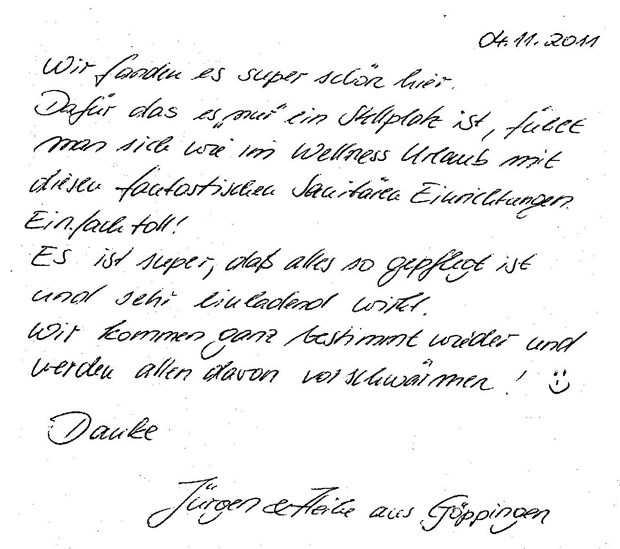 04.11.2011
Wir fanden es super schön hier.
Dafür das es „nur" ein Stellplatz ist, fühlt
man sich wie im Wellness Urlaub mit
diesen fantastischen Sanitären Einrichtungen.
Einfach toll!
Es ist super, daß alles so gepflegt ist
und sehr einladend wirkt.
Wir kommen ganz bestimmt wieder und
werden allen davon vorschwärmen! :)
Danke
Jürgen & Heike aus Göppingen